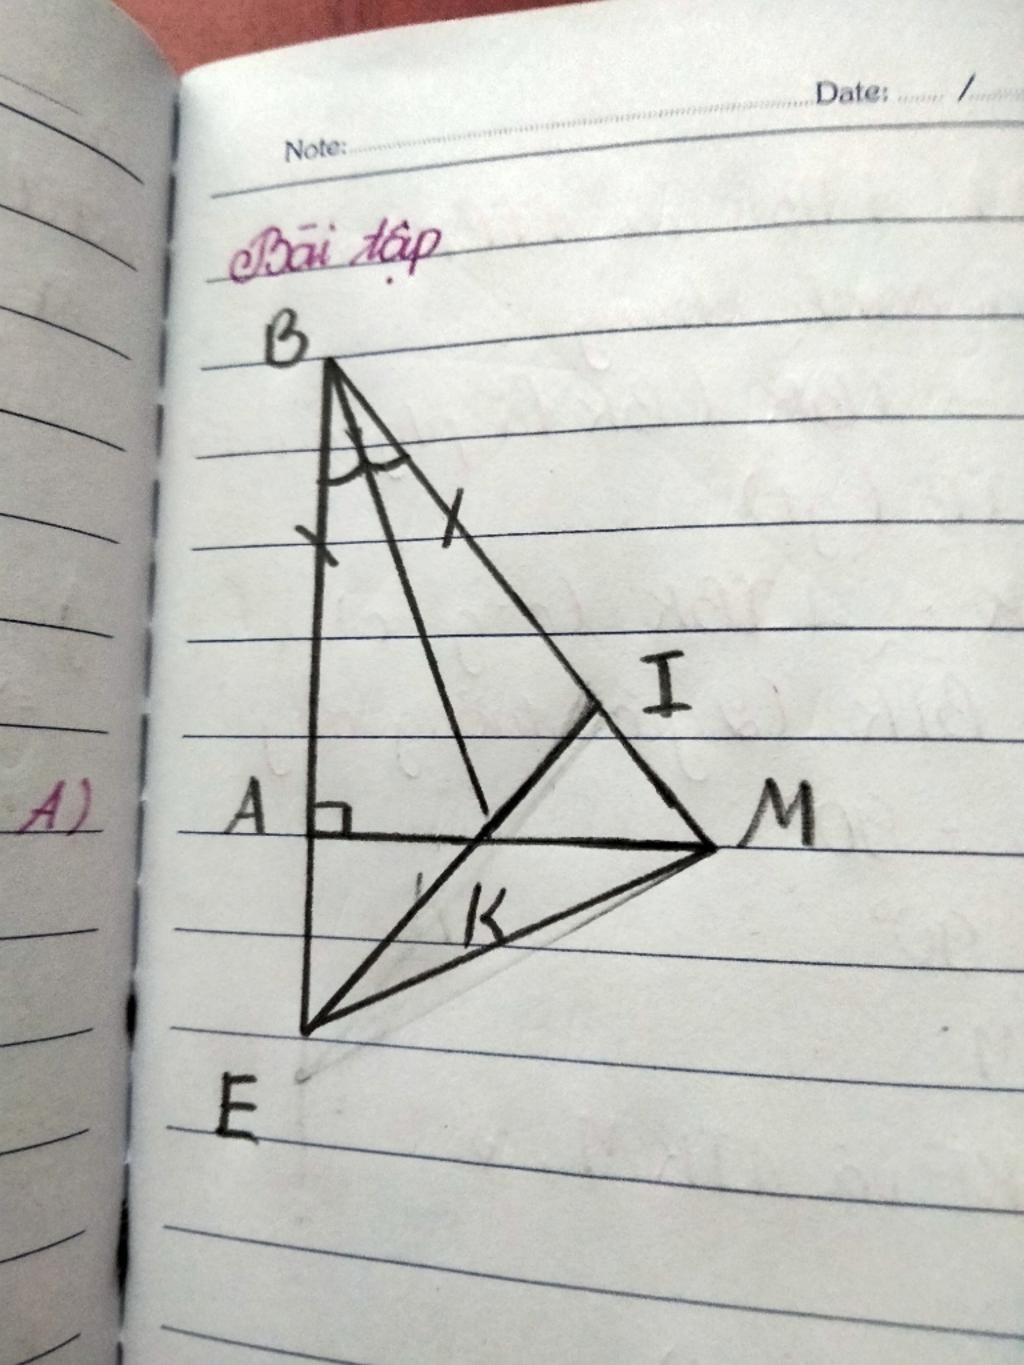 Date: ...... / ......
Note: ......
Bài tập
B
I
A)
A
M
K
E